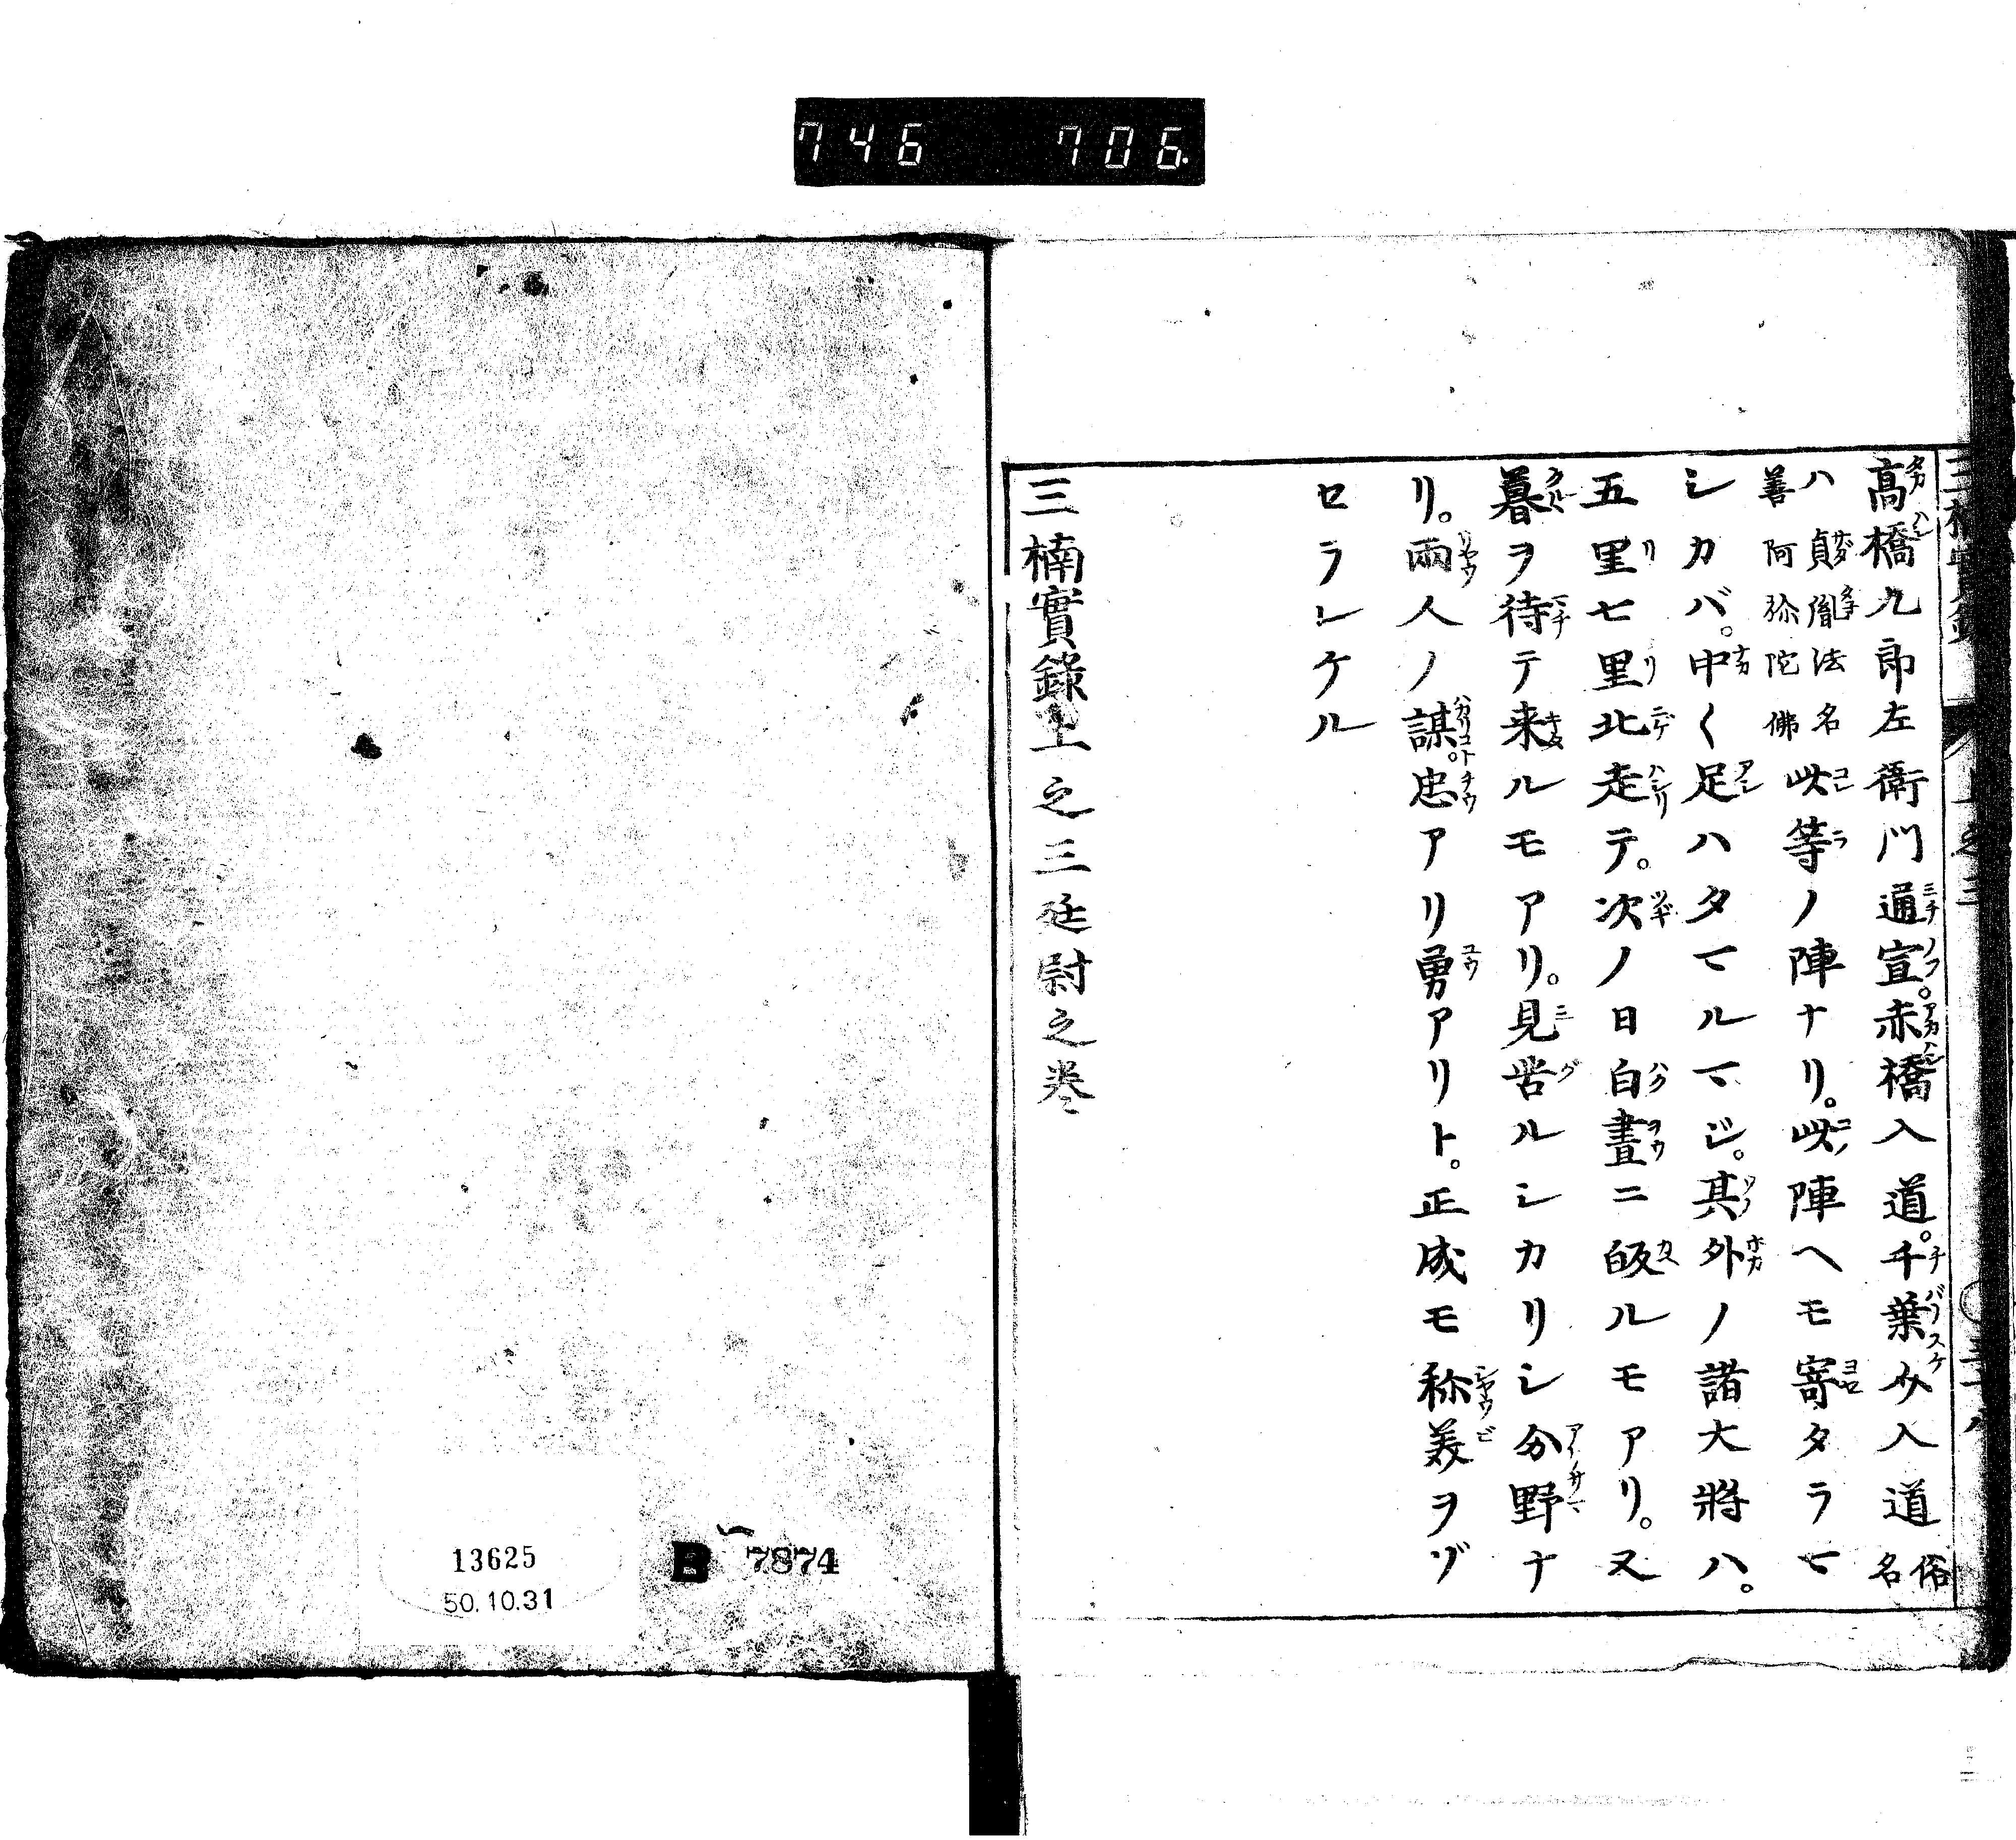 746 706
高橋九郎左衛門通宣。赤橋入道。千葉介入道俗名
ハ貞胤法名善阿弥陀佛此等ノ陣ナリ。此陣ヘモ寄タラマ
シカバ。中〱足ハタマルマジ。其外ノ諸大將ハ。
五里七里北走テ。次ノ日白晝ニ皈ルモアリ。又
暮ヲ待テ来ルモアリ。見苦ルシカリシ分野ナ
リ。兩人ノ謀。忠アリ勇アリト。正成モ称美ヲゾ
セラレケル
三楠實錄上之三廷尉之巻
13625
50.10.31
B 7874